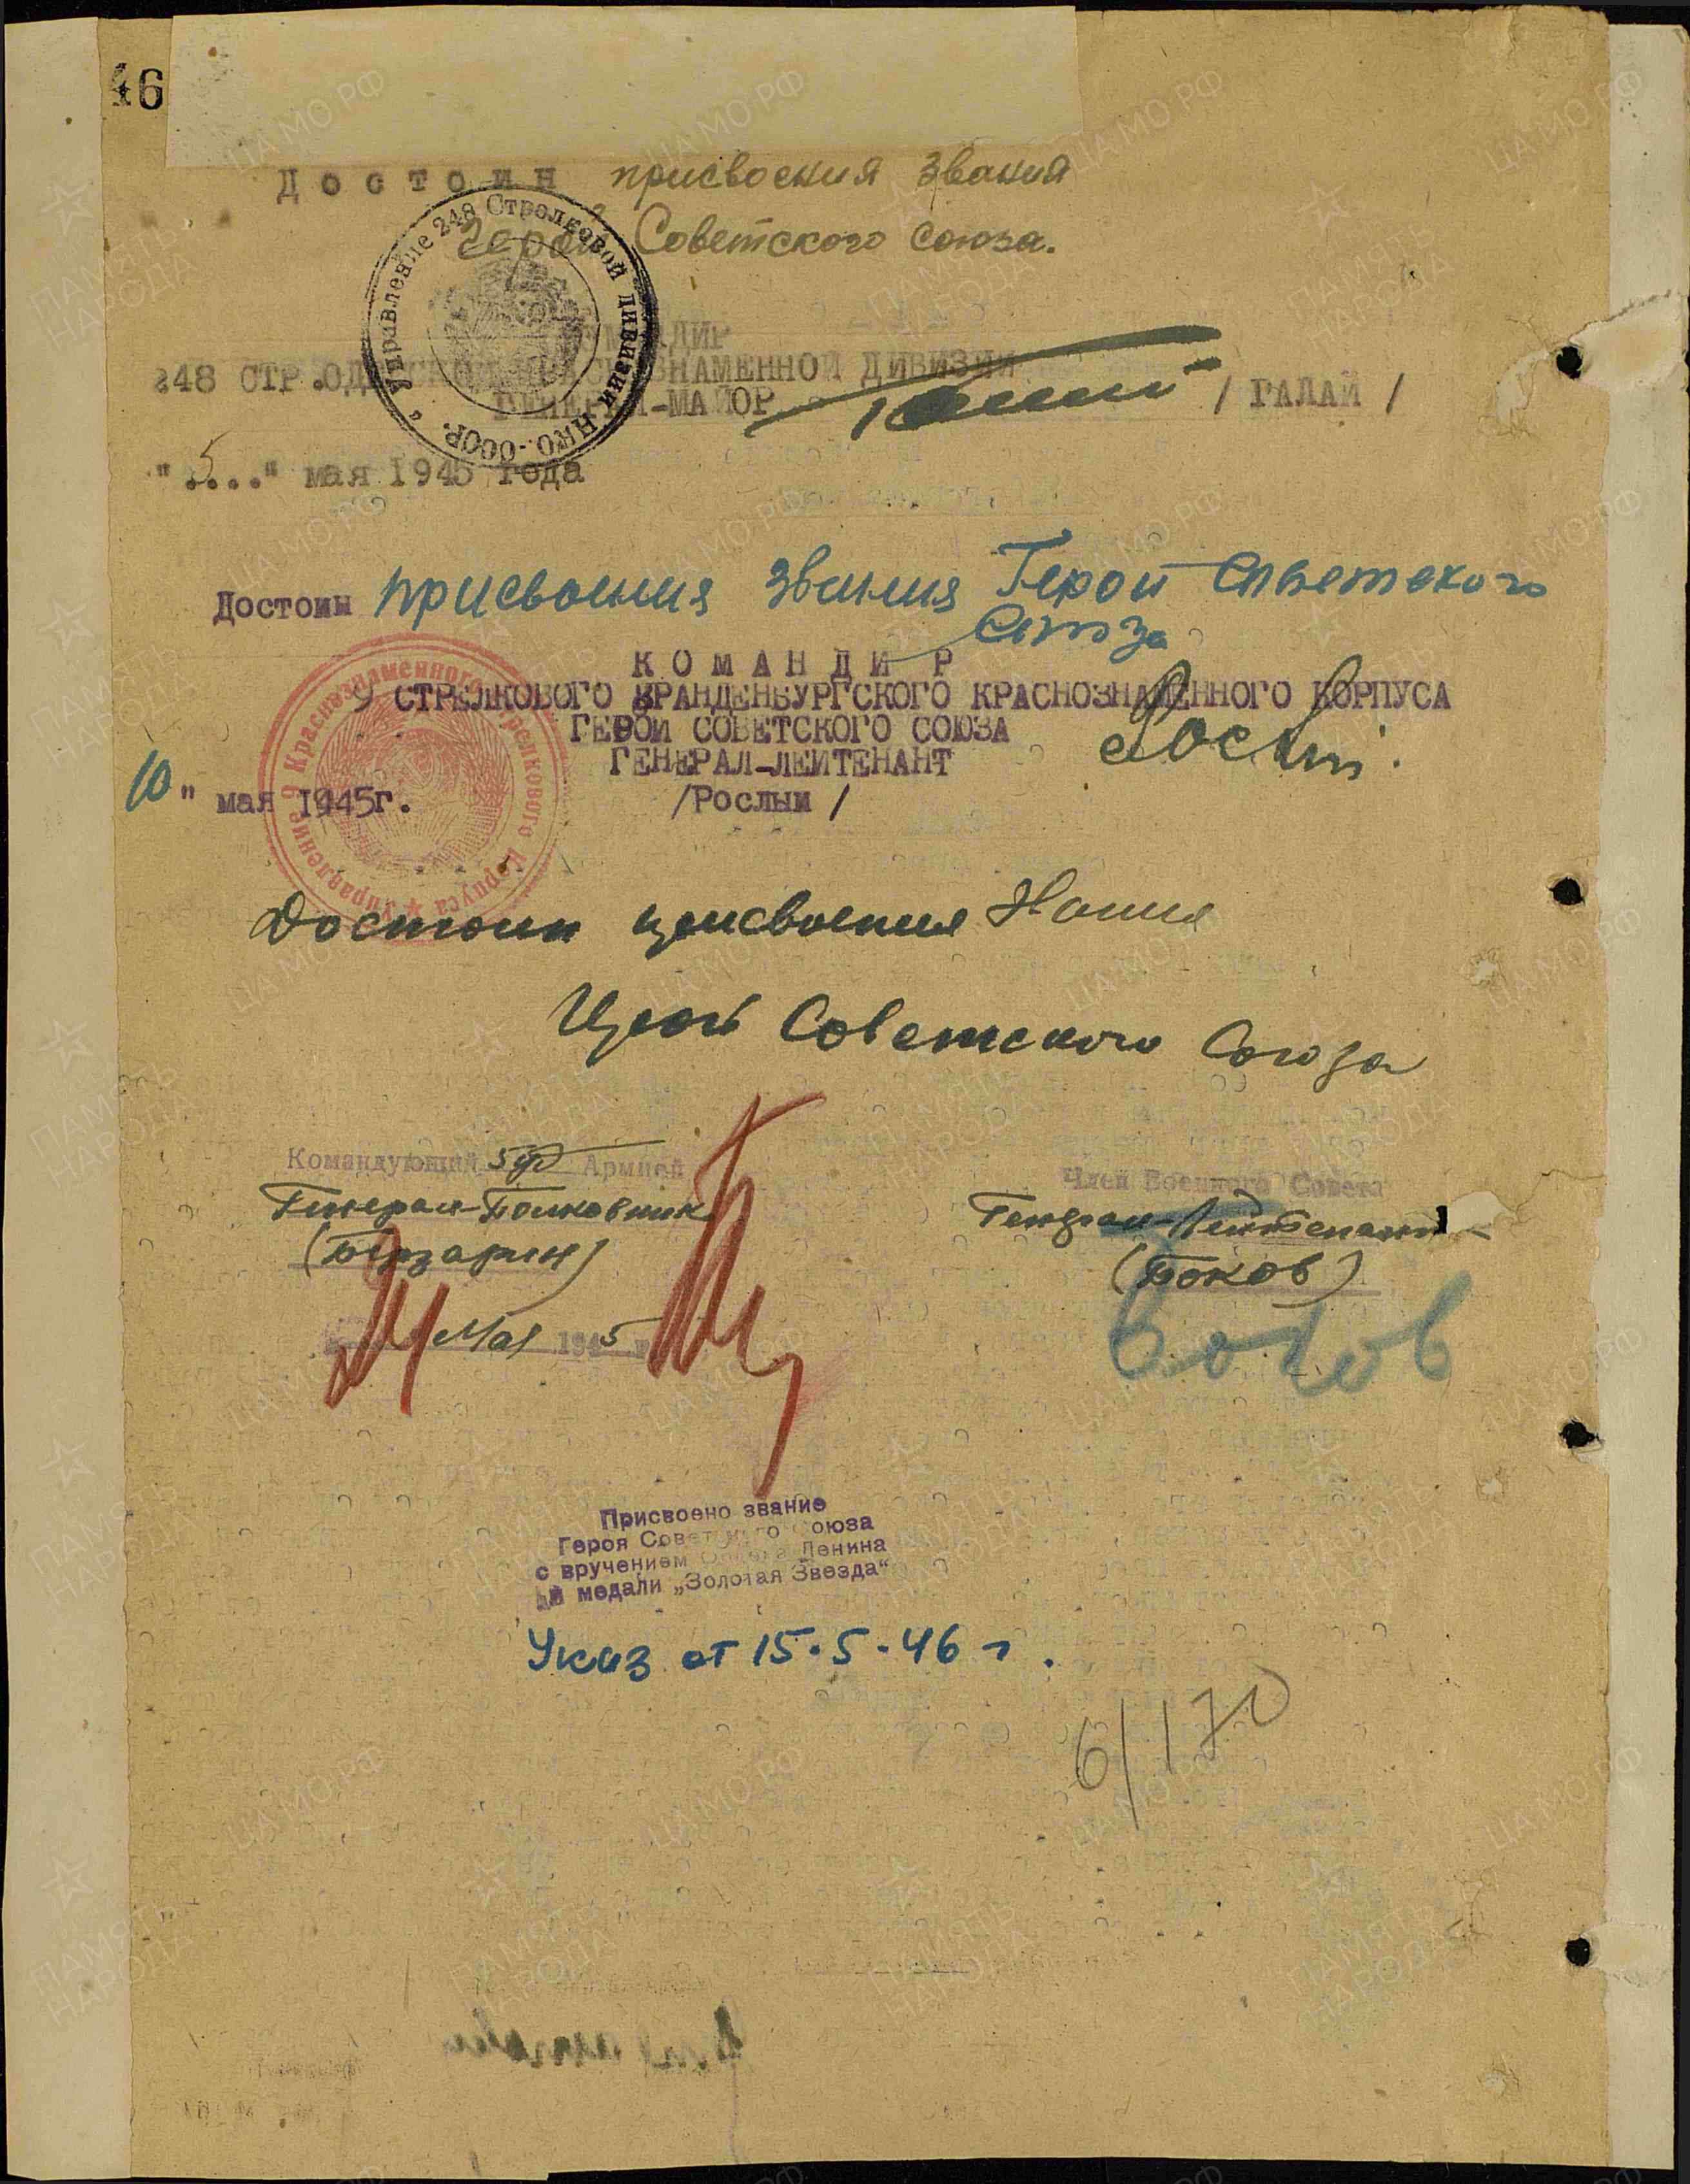 46
Достоин присвоения звания
Герой Советского Союза.
Управление 248 Стрелковой дивизии НКО-СССР.
КОМАНДИР
248 СТР.ОДЕССКОЙ КРАСНОЗНАМЕННОЙ ДИВИЗИИ
ГЕНЕРАЛ-МАЙОР / ГАЛАЙ /
"5..." мая 1945 года
Достоин присвоения звания Герой Советского
Союза
КОМАНДИР
9 СТРЕЛКОВОГО БРАНДЕНБУРГСКОГО КРАСНОЗНАМЕННОГО КОРПУСА
ГЕРОЙ СОВЕТСКОГО СОЮЗА
ГЕНЕРАЛ-ЛЕЙТЕНАНТ
10 " мая 1945г. /Рослый /
Управление 9 Краснознаменного Стрелкового Корпуса
Достоин присвоения звания
Герой Советского Союза
Командующий 5 уд Армией
Генерал-Полковник
(Берзарин)
Мая 1945
Член Военного Совета
Генерал-Лейтенант
(Боков)
Боков
Присвоено звание
Героя Советского Союза
с вручением Ордена Ленина
и медали „Золотая Звезда“
Указ от 15.5.46 г.
6/170